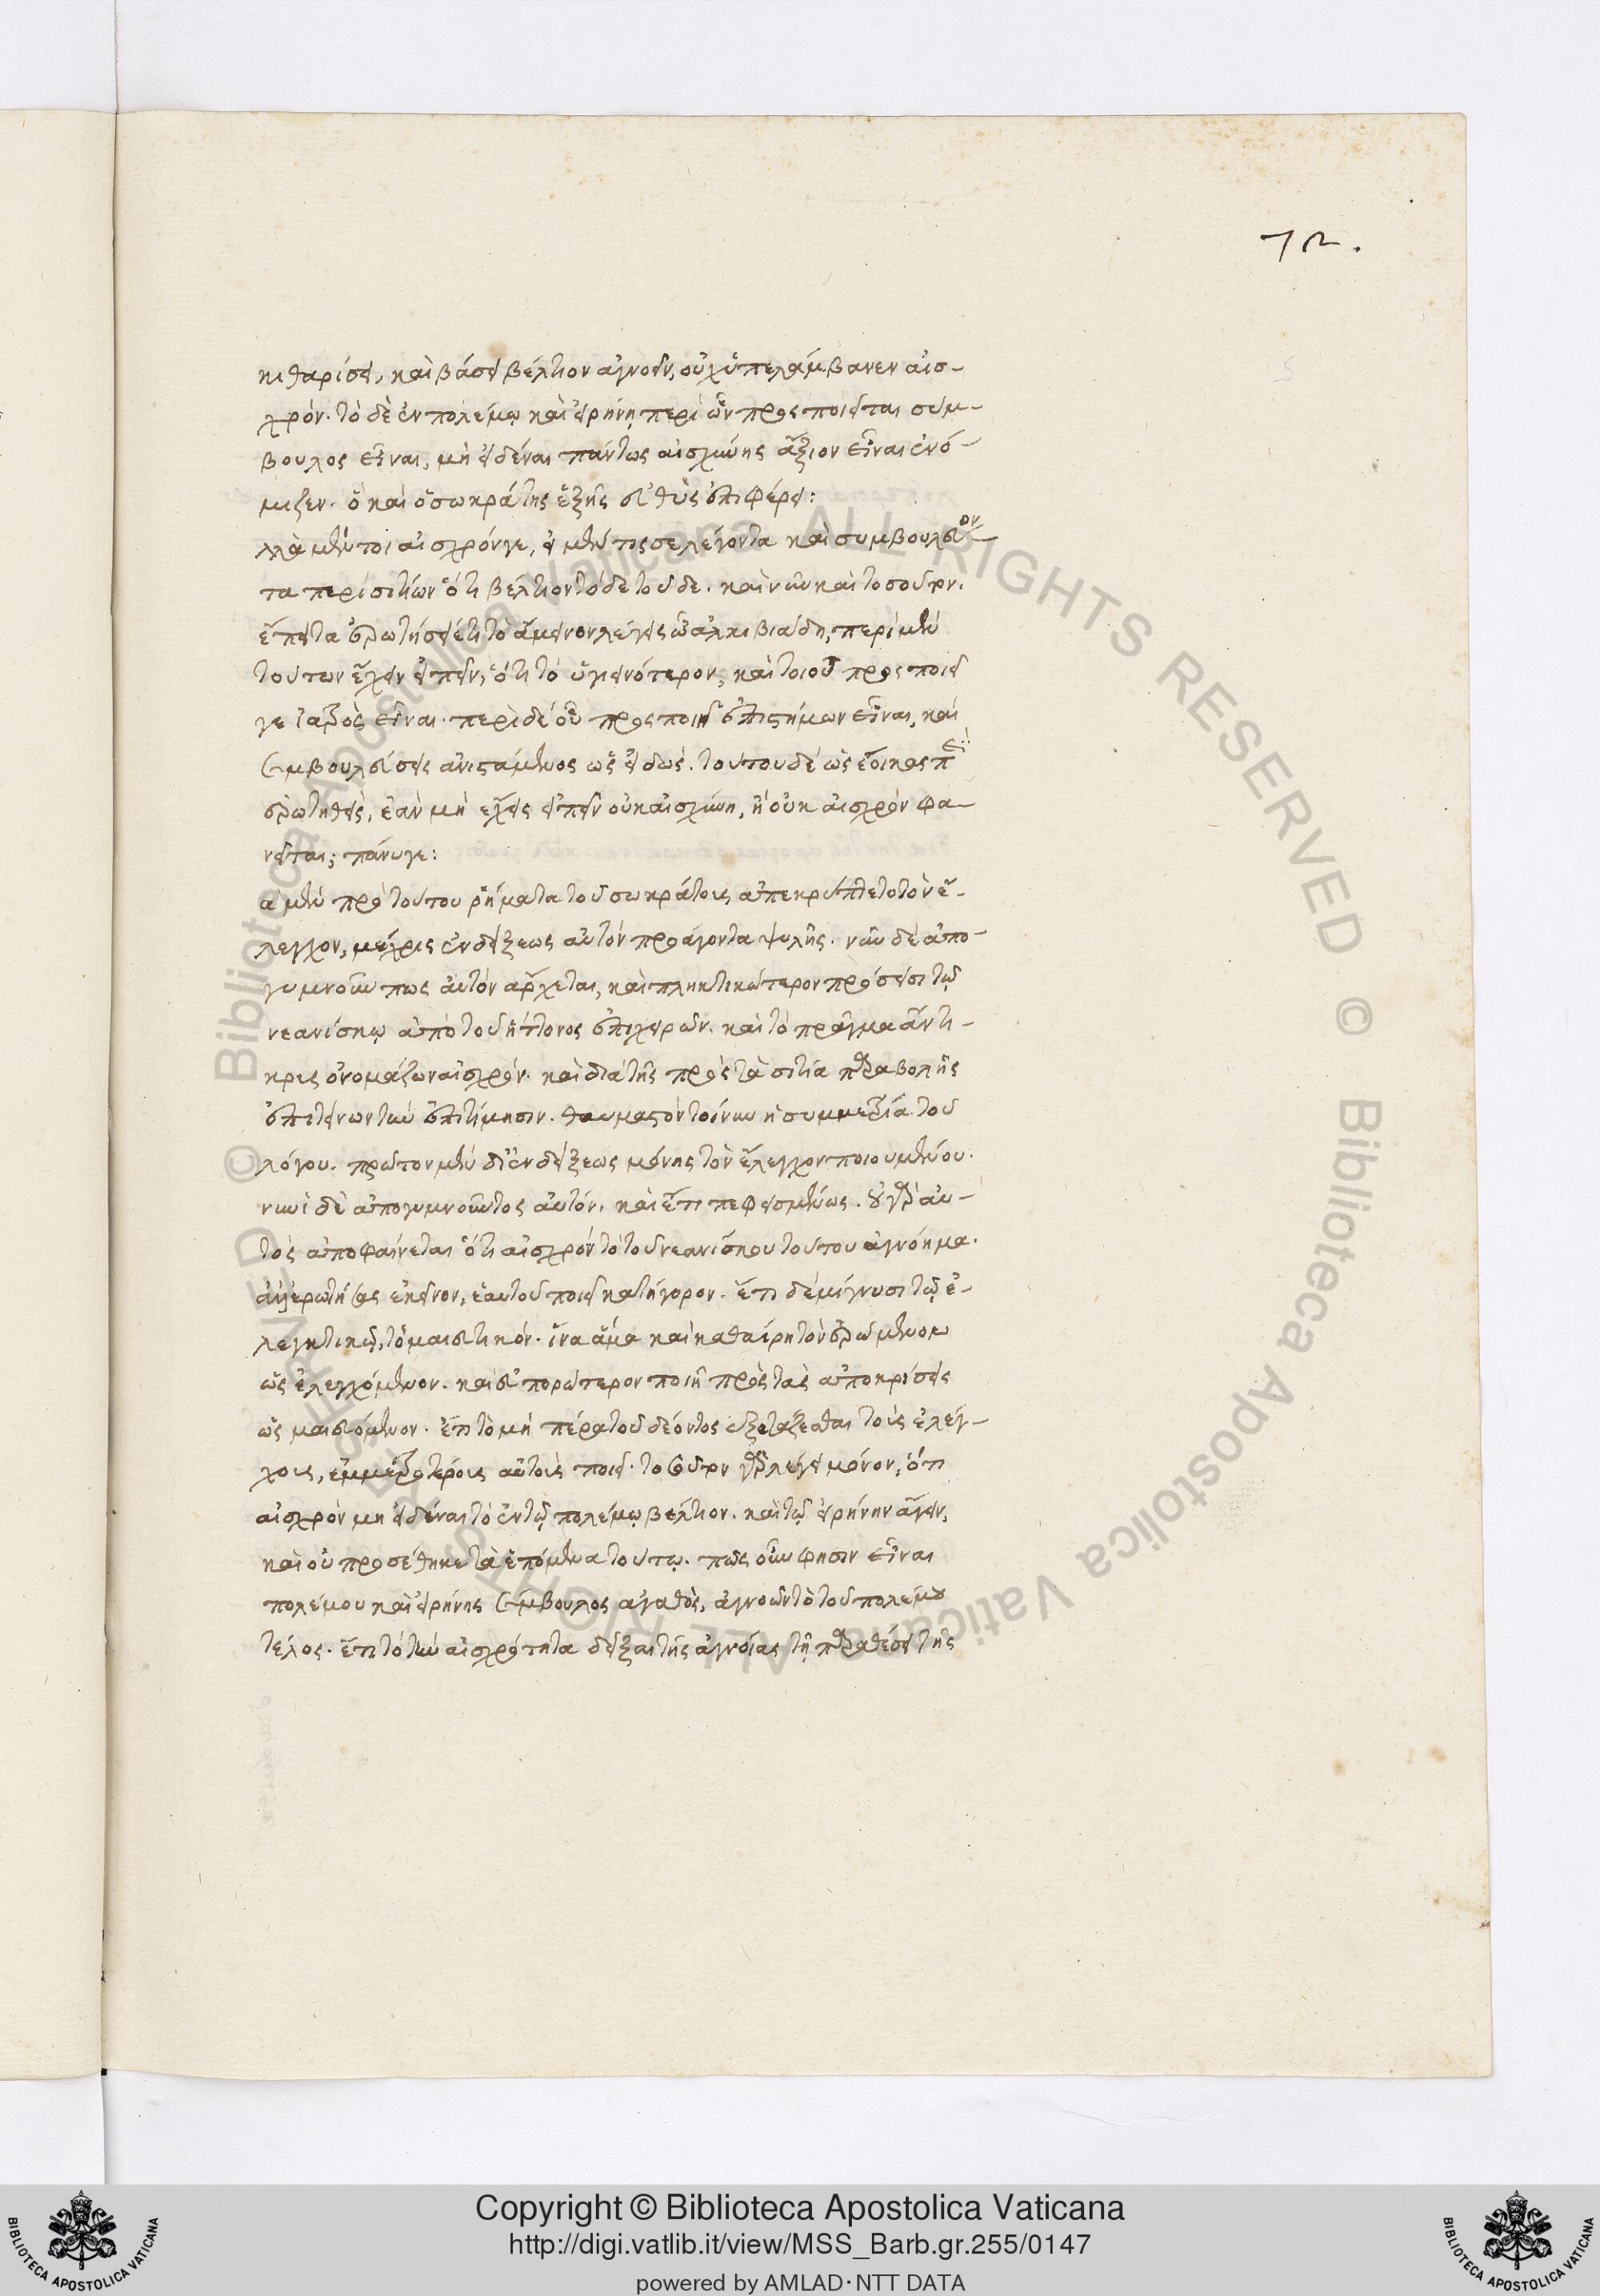 72.
κιθαρίσει, καὶ βάσει βέλτιον ἀγνοεῖν, οὐχ ὑπελάμβανεν αἰσ-
χρόν· τὸ δὲ ἐν πολέμῳ καὶ εἰρήνῃ περὶ ὧν προςποιεῖται σύμ-
βουλος εἶναι, μὴ εἰδέναι πάντως αἰσχύνης ἄξιον εἶναι ἐνό-
μιζεν· ὃ καὶ ὁ σωκράτης ἑξῆς εὐθὺς ἐπιφέρει:
λλὰ μέντοι αἰσχρόν γε, εἰ μέν τίς σε λέγοντα καὶ συμβουλεύον-
τα περὶ σιτίων ὅτι βέλτιον τόδε τοῦδε. καὶ νῦν καὶ τοσοῦτον.
ἔπειτα ἐρωτήσειέ τί τὸ ἄμεινον λέγεις ὦ ἀλκιβιάδη, περὶ μὲν
τούτων ἔχειν εἰπεῖν, ὅτι τὸ ὑγιεινότερον, καίτοι οὐ προςποιεῖ
γε ἰατρὸς εἶναι. περὶ δὲ οὗ προςποιῇ ἐπιστήμων εἶναι, καὶ
συμβουλεύσεις ἀνιστάμενος ὡς εἰδώς. τούτου δὲ ὡς ἔοικας περὶ
ἐρωτηθεὶς, ἐὰν μὴ ἔχεις εἰπεῖν οὐκ αἰσχύνῃ, ἢ οὐκ αἰσχρὸν φα-
νεῖται; πάνυ γε:
αἱ μὲν πρὸ τούτου ῥήματα τοῦ σωκράτους ἀπεκρύπτετο τὸν ἔ-
λεγχον, μέχρις ἐνδείξεως αὐτὸν προάγοντα ψιλῆς. νῦν δὲ ἀπο-
γυμνοῦν πως αὐτὸν ἄρχεται, καὶ πληκτικώτερον πρόσεισι τῷ
νεανίσκῳ ἀπὸ τοῦ ἥττονος ἐπιχειρῶν. καὶ τὸ πρᾶγμα ἄντι-
κρυς ὀνομάζων αἰσχρόν. καὶ διὰ τῆς πρὸς τὰ σιτία παραβολῆς
ἐπιτείνων τὴν ἐπιτίμησιν. θαυμαστὸν τοίνυν ἡ συμμετρία τοῦ
λόγου. πρῶτον μὲν δι' ἐνδείξεως μόνης τὸν ἔλεγχον ποιουμένου.
νυνὶ δὲ ἀπογυμνοῦντος αὐτόν. καὶ ἔτι πεφεισμένως. οὐ γὰρ αὐ-
τὸς ἀποφαίνεται ὅτι αἰσχρὸν τὸ τοῦ νεανίσκου τούτου ἀγνόημα.
ἀνερωτήσας ἐκεῖνον, ἑαυτοῦ ποιεῖ κατήγορον. ἔτι δὲ μίγνυσι τῷ ἐ-
λεγκτικῷ, τὸ μαιευτικόν. ἵνα ἅμα καὶ καθαίρῃ τὸν ἐρώμενον
ὡς ἐλεγχόμενον. καὶ εὐπορώτερον ποιῇ πρὸς τὰς ἀποκρίσεις
ὡς μαιευόμενον. ἔτι τὸ μὴ πέρα τοῦ δέοντος ἐξετάζεσθαι τοῖς ἐλέγ-
χοις, ἐμμετροτέροις αὐτοῖς ποιεῖ. τοσοῦτον γὰρ λέγει μόνον, ὅτι
αἰσχρὸν μὴ εἰδέναι τὸ ἐν τῷ πολέμῳ βέλτιον. καὶ τῷ εἰρήνην ἄγειν.
καὶ οὐ προσέθηκε τὰ ἑπόμενα τούτῳ. πῶς οὖν φησιν εἶναι
πολέμου καὶ εἰρήνης σύμβουλος ἀγαθὸς, ἀγνοῶν τὸ τοῦ πολέμου
τέλος. ἔτι τὸ τὴν αἰσχρότητα δεῖξαι τῆς ἀγνοίας τῇ παραθέσει τῆς
Copyright © Biblioteca Apostolica Vaticana
http://digi.vatlib.it/view/MSS_Barb.gr.255/0147
powered by AMLAD·NTT DATA